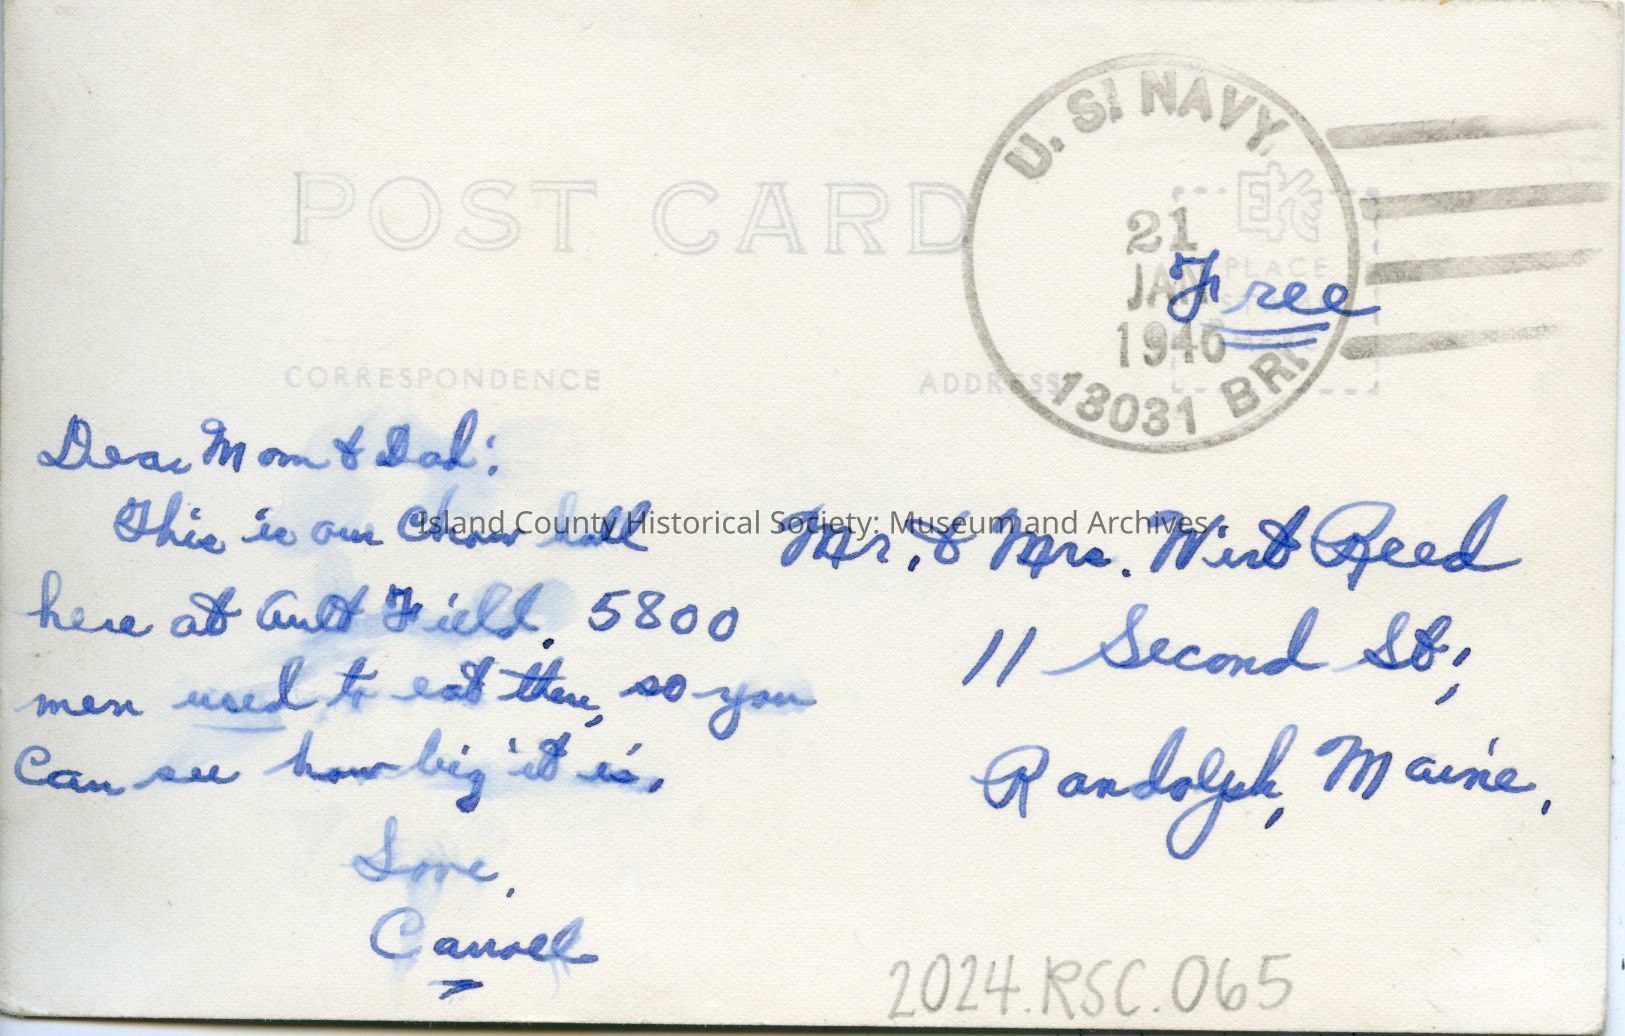 POST CARD
CORRESPONDENCE
ADDRESS
U. S. NAVY
21
JAN
1946
13031 BR.
PLACE
Free
Dear Mom & Dad:
This is our Chow hall
here at Ault Field. 5800
men used to eat there, so you
Can see how big it is.
Love,
Carroll
Mr. & Mrs. Wirt Reed
11 Second St,
Randolph, Maine.
Island County Historical Society: Museum and Archives
2024.RSC.065